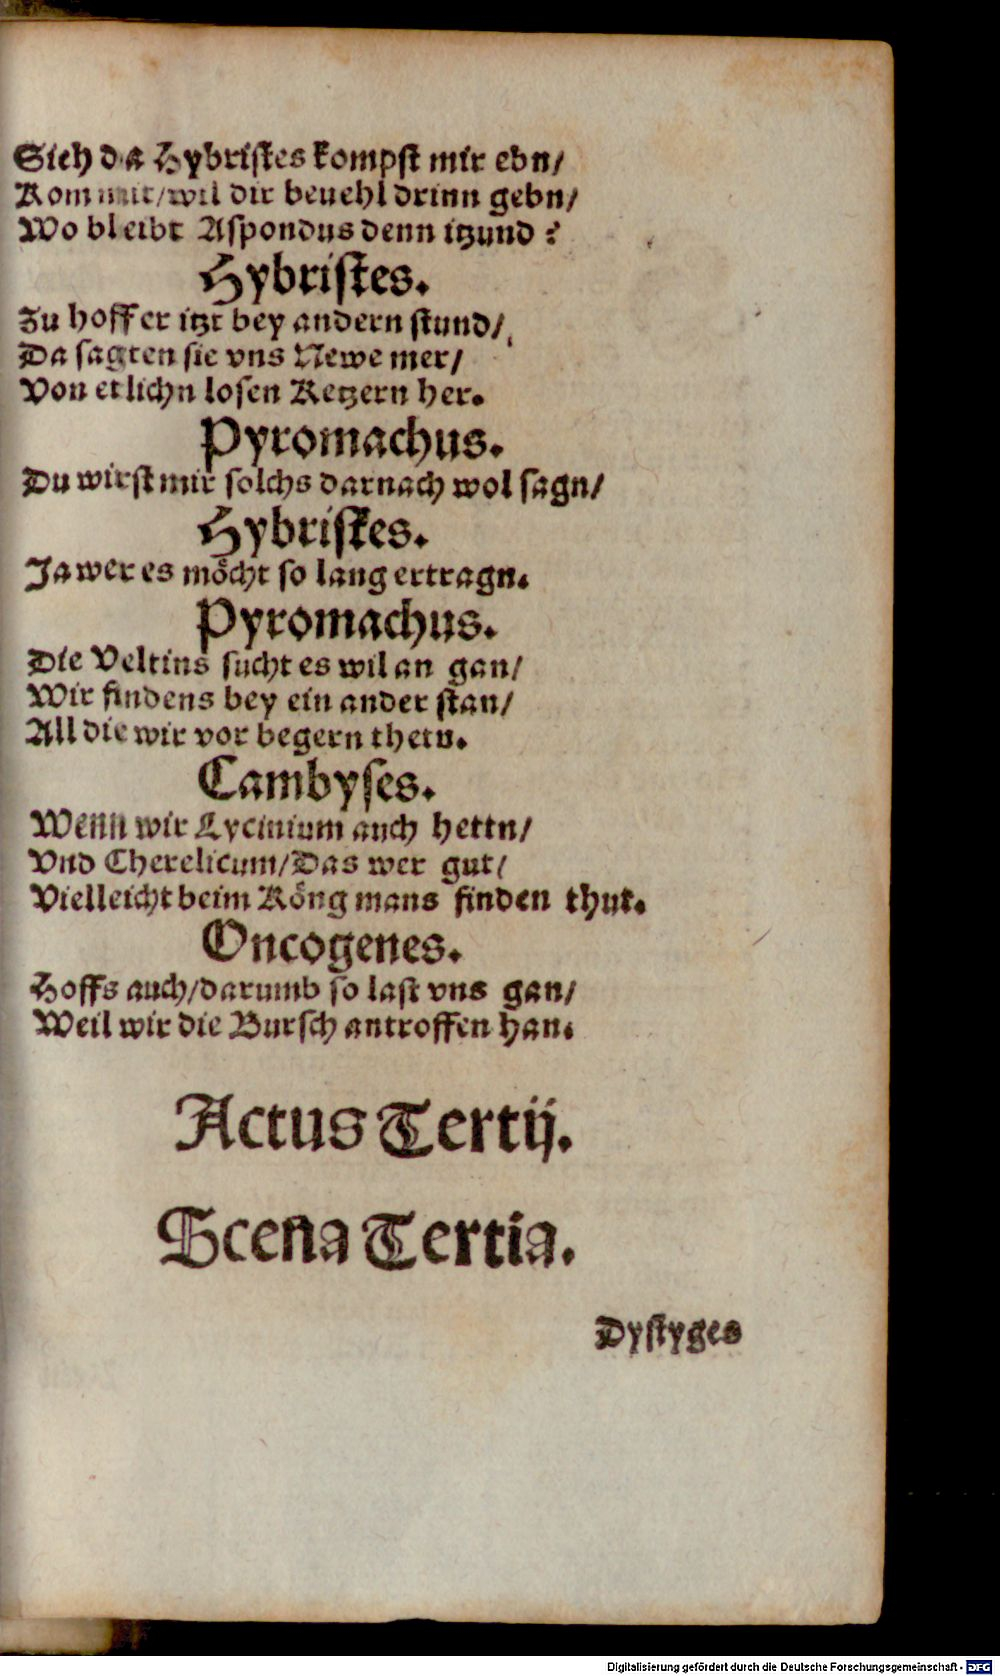 Sieh da Hybriſtes kompſt mir ebn/
Kom mit/wil dir beuehl drinn gebn/
Wo bleibt Aſpondus denn itzund?
Hybriſtes.
Zu hoff er itzt bey andern ſtund/
Da ſagten ſie vns Newe mer/
Von etlichn loſen Ketzern her.
Pyromachus.
Du wirſt mir ſolchs darnach wol ſagn/
Hybriſtes.
Ja wer es möcht ſo lang ertragn.
Pyromachus.
Die Veltins ſucht es wil an gan/
Wir findens bey ein ander ſtan/
All die wir vor begern thetn.
Cambyſes.
Wenn wir Lycinium auch hettn/
Vnd Cherelicum/Das wer gut/
Vielleicht beim Köng mans finden thut.
Oncogenes.
Hoffs auch/darumb ſo laſt vns gan/
Weil wir die Burſch antroffen han.
Actus Tertij.
Scena Tertia.
Dyſtyges
Digitalisierung gefördert durch die Deutsche Forschungsgemeinschaft - DFG